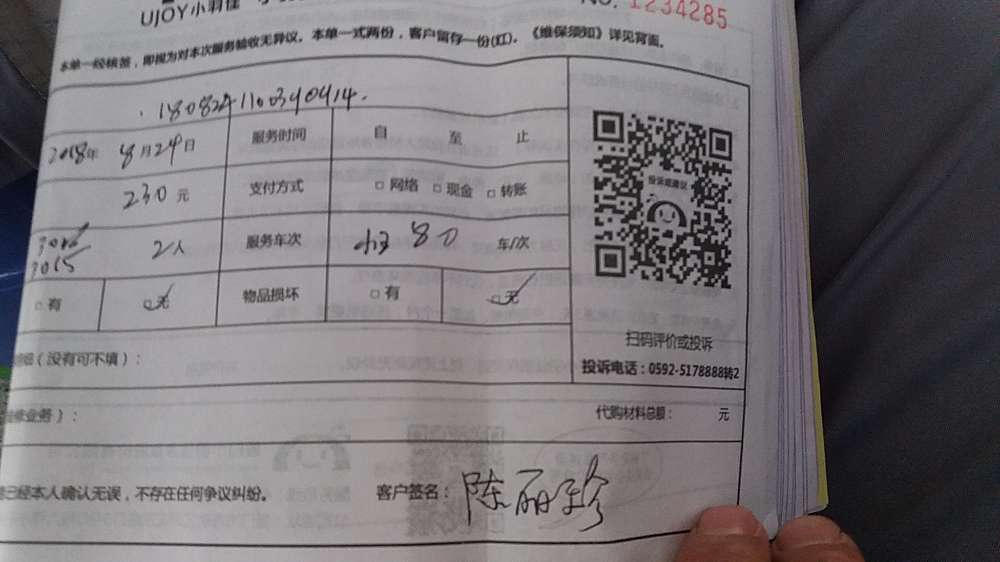 UJOY小羽佳
NO. 1234285
本单一经核签，即视为对本次服务验收无异议。本单一式两份，客户留存一份(红)。《维保须知》详见背面。
180824110340414.
2018年 8月24日 服务时间 自 至 止
230元 支付方式 □网络 □现金 □转账
投诉或建议
3015 2人 服务车次 车/次
□有 □无 物品损坏 □有 □无
扫码评价或投诉
(没有可不填)：
投诉电话：0592-5178888转2
业务)： 代购材料总额： 元
已经本人确认无误，不存在任何争议纠纷。 客户签名：陈丽珍